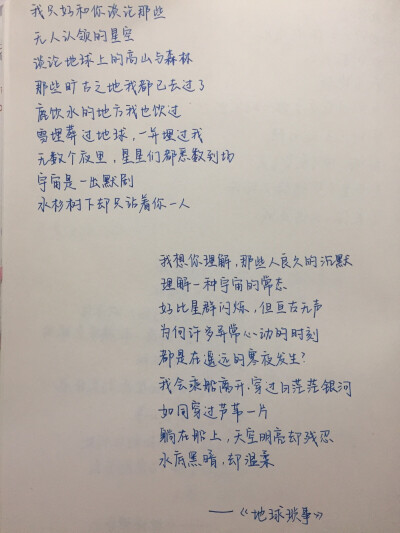 我只好和你谈论那些
无人认领的星空
谈论地球上的高山与森林
那些旷古之地我都已去过了
鹿饮水的地方我也饮过
雪埋葬过地球，一并埋过我
无数个夜里，星星们都悉数到场
宇宙是一出默剧
水杉树下却只站着你一人
我想你理解，那些人良久的沉默
理解一种宇宙的常态
好比星群闪烁，但亘古无声
为何许多异常心动的时刻
都是在遥远的寒夜发生？
我会乘船离开，穿过白茫茫银河
如同穿过芦苇一片
躺在船上，天空明亮却残忍
水底黑暗，却温柔
——《地球琐事》